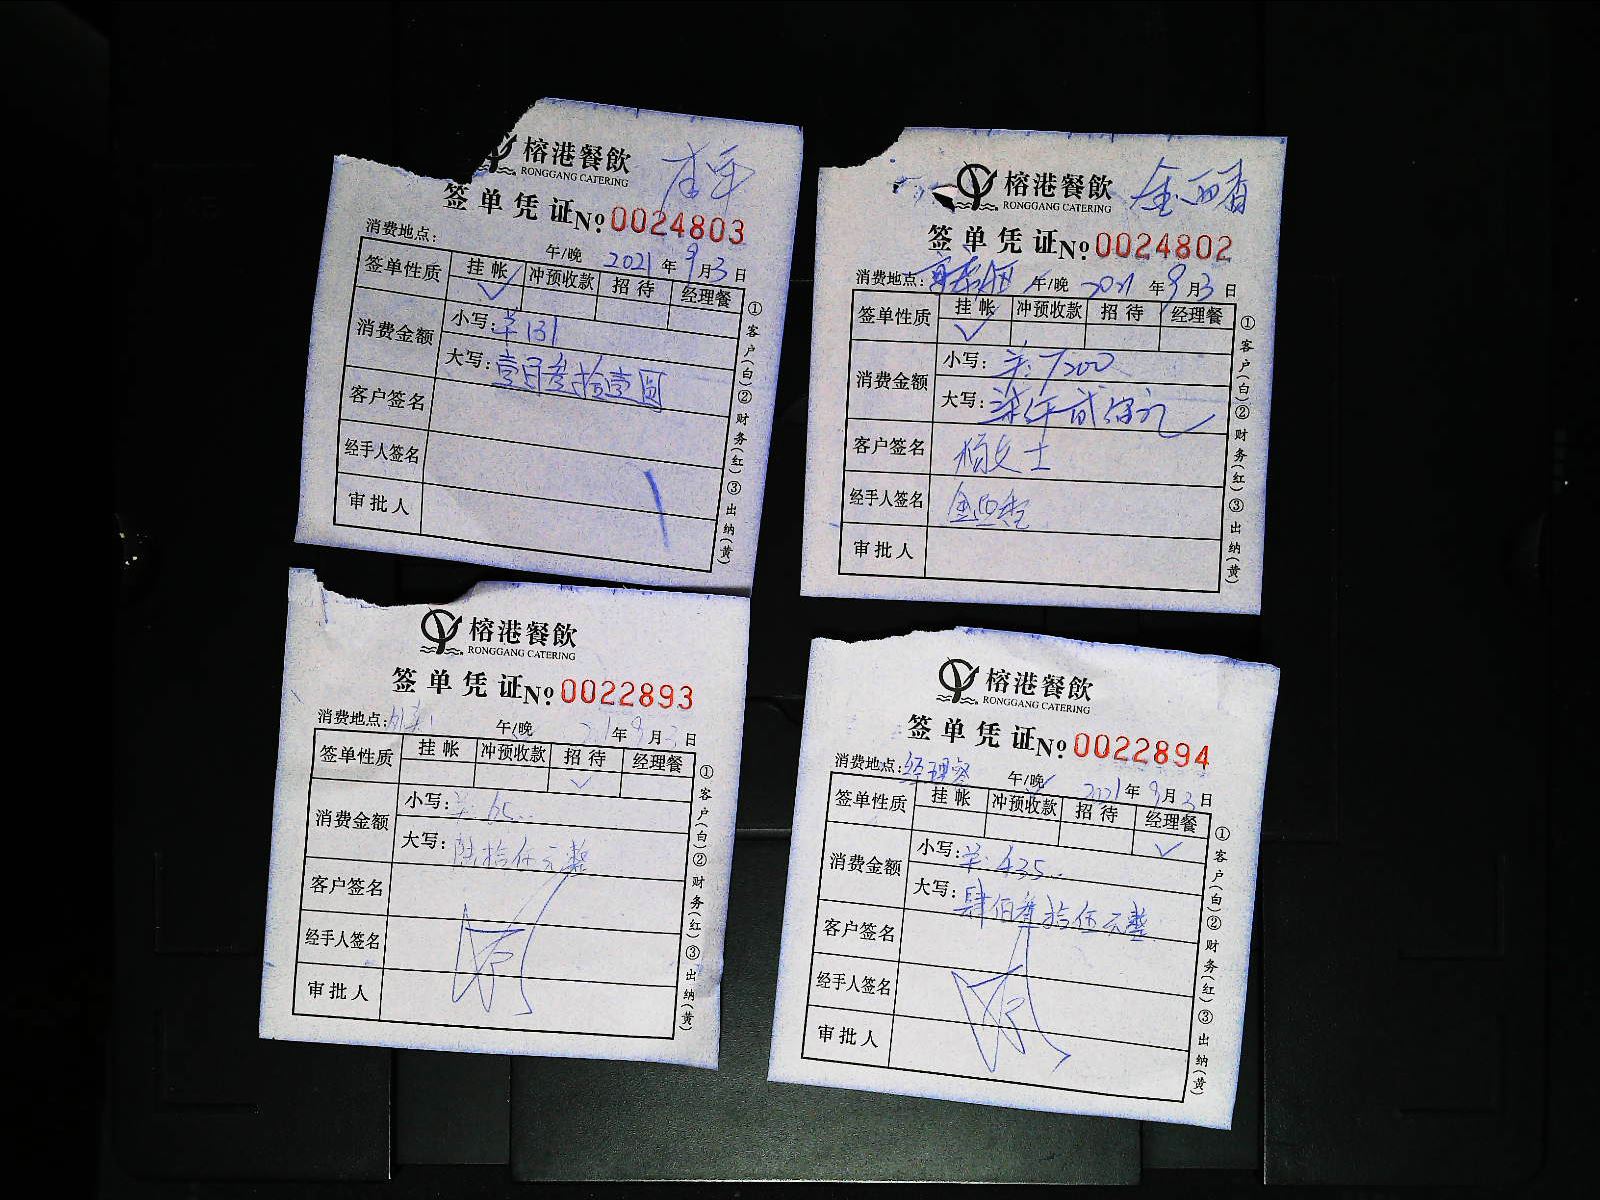 榕港餐飲
RONGGANG CATERING
签单凭证 No: 0024803
消费地点: 午/晚 2021年9月3日
签单性质 挂帐 冲预收款 招待 经理餐
消费金额 小写: 131
大写: 壹百叁拾壹圆
客户签名
经手人签名
审批人
①客户(白)②财务(红)③出纳(黄)
榕港餐飲 金
RONGGANG CATERING
签单凭证 No: 0024802
消费地点: 午/晚 2021年9月3日
签单性质 挂帐 冲预收款 招待 经理餐
消费金额 小写: 7200
大写: 柒仟贰佰元
客户签名 杨女士
经手人签名 金
审批人
①客户(白)②财务(红)③出纳(黄)
榕港餐飲
RONGGANG CATERING
签单凭证 No: 0022893
消费地点: 午/晚 21年9月3日
签单性质 挂帐 冲预收款 招待 经理餐
消费金额 小写: 65
大写: 陆拾伍元整
客户签名
经手人签名
审批人
①客户(白)②财务(红)③出纳(黄)
榕港餐飲
RONGGANG CATERING
签单凭证 No: 0022894
消费地点: 经理餐 午/晚 2021年9月3日
签单性质 挂帐 冲预收款 招待 经理餐
消费金额 小写: 435
大写: 肆佰叁拾伍元整
客户签名
经手人签名
审批人
①客户(白)②财务(红)③出纳(黄)